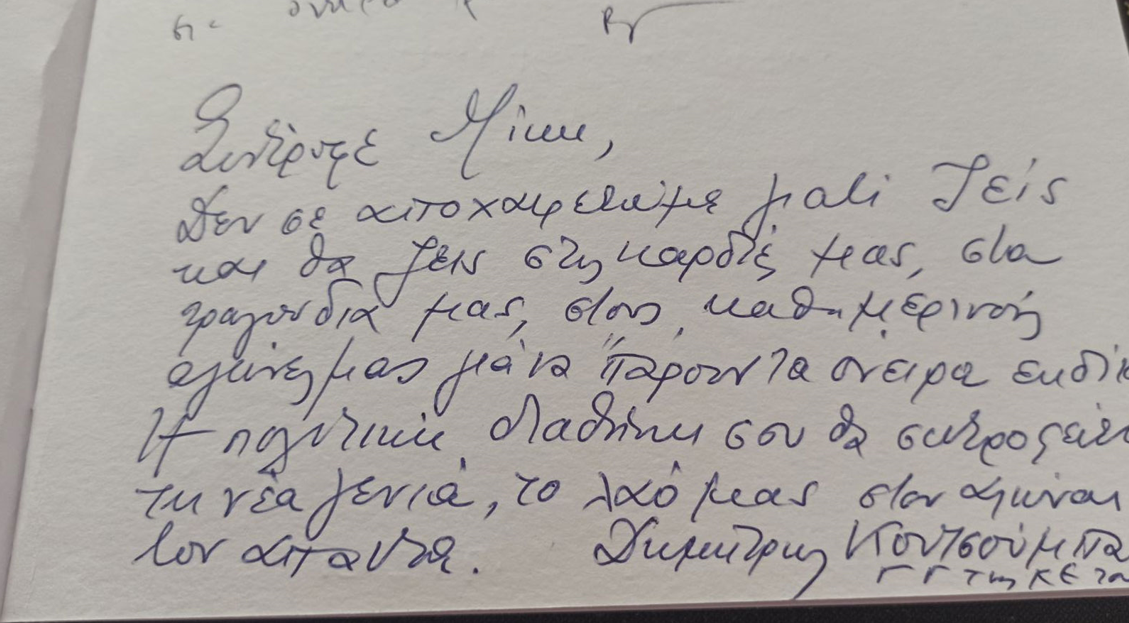 Σύντροφε Μίκη,
Δεν σε αποχαιρετάμε γιατί ζεις
και θα ζεις στις καρδιές μας, στα
τραγούδια μας, στους καθημερινούς
αγώνες μας για να "πάρουν τα όνειρα εκδίκ
Η πολιτική διαθήκη σου θα
τη νέα γενιά, το λαό μας στον αγώνα
τον απάντα. Δημήτρης Κουτσούμπα
ΓΓ της ΚΕ το